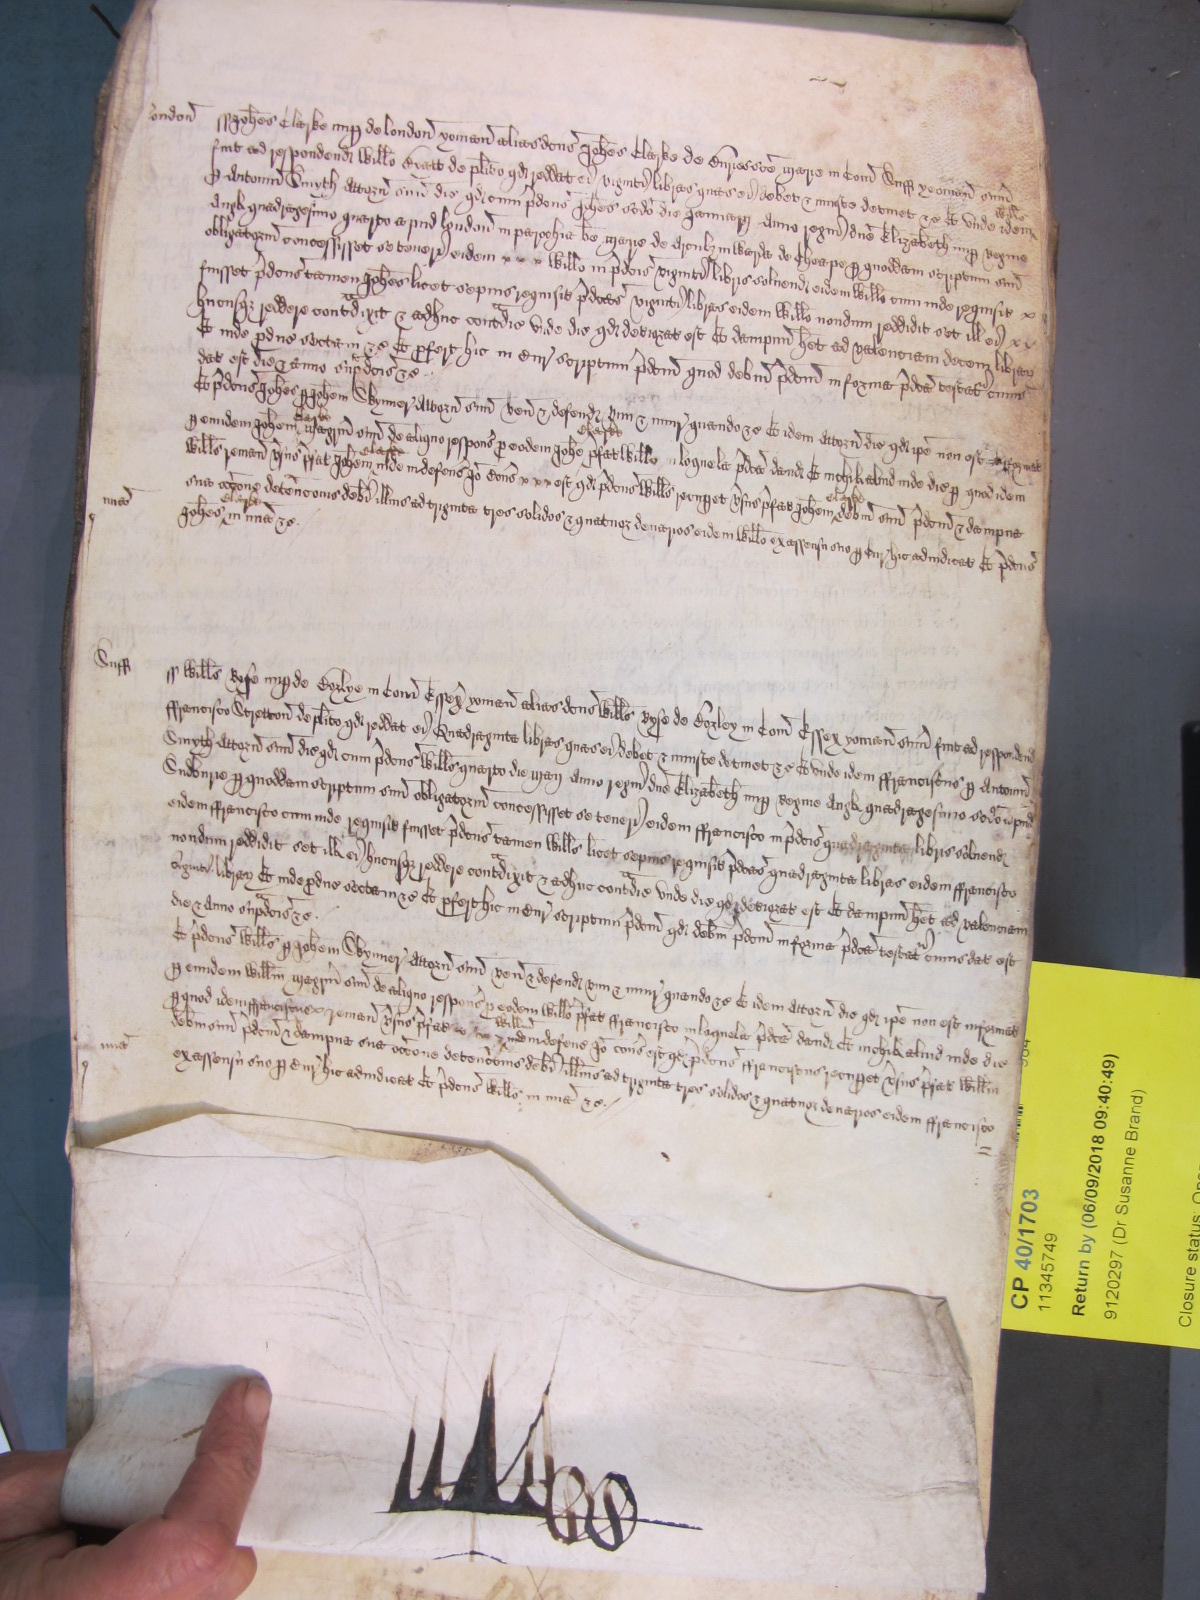 london
ss Johes Clarke nup de london yoman alias dcus Johes Clarke de marie in Com Suff yeoman sum
fuit ad respondend Willo de plito qd reddat ei viginti libras quas ei debet & iniuste detinet &c Et unde idem Willus
p Antoniu Smyth Attorn suu dic qd cum pdcus Johes scdo die Januarij Anno regni dne Elizabeth nup Regine
Angl quadragesimo quarto apud london in parochia be marie de Arcubz in warda de Cheape p quoddam scriptum suu
obligatoriu concessisset se teneri eidem x x x Willo in pdcis viginti libris solvend eidem Willo cum inde requisit x
fuisset pdcus tamen Johes licet sepius requisit pdcas viginti libras eidem Willo nondum reddidit set ill ei x x
hucusqz reddere contradixit & adhuc contradic unde dic qd deteriorat est Et dampnu het ad valenciam decem librar
Et inde pduc sectam &c Et pfert hic in Cur scriptum pdcm quod debm pdcm in forma pdca testat cuius
dat est die & anno suppdcis &c
Et pdcus Johes p Johem Skynner Attorn suu ven & defend vim & iniur quando &c Et idem Attorn dic qd ipe non est informat
p eundem Johem Clarke magrm suu de aliquo respons p eodem Johe Clarke pfat Willo in loquela pdca dand Et nichil aliud inde dic p quod idem
Willus reman vsus pfat Johem Clarke inde indefens Jo cons x x x est qd pdcus Willus recupet vsus pfat Johem Clarke debm suu pdcm & dampna
sua occone detencionis debi illius ad triginta tres solidos & quatuor denarios eidem Willo ex assensu suo p Cur hic adiudicat Et pdcus
mia
Johes Clarke in mia &c
Suff
ss Willus Ryse nup de in Com Essex yoman alias dcus Willus Ryse de in Com Essex yoman sum fuit ad respondend
ffrancisco Stretton de plito qd reddat ei Quadraginta libras quas ei debet & iniuste detinet &c Et unde idem ffranciscus p Antoniu
Smyth Attorn suu dic qd cum pdcus Willus quarto die maij Anno regni dne Elizabeth nup Regine Angl quadragesimo scdo apud
p quoddam scriptum suu obligatoriu concessisset se teneri eidem ffrancisco in pdcis quadraginta libris solvend
eidem ffrancisco cum inde requisit fuisset pdcus tamen Willus licet sepius requisit pdcas quadraginta libras eidem ffrancisco
nondum reddidit set ill ei hucusqz reddere contradixit & adhuc contradic unde dic qd deteriorat est Et dampnu het ad valenciam
viginti librar Et inde pduc sectam &c Et pfert hic in Cur scriptum pdcm qd debm pdcm in forma pdca testat cuius dat est
die & anno suppdcis &c
Et pdcus Willus p Johem Skynner Attorn suu ven & defend vim & iniur quando &c Et idem Attorn dic qd ipe non est informat
p eundem Willm magrm suu de aliquo respons p eodem Willo pfat ffrancisco in loquela pdca dand Et nichil aliud inde dic
p quod idem ffranciscus reman vsus pfat Willm inde indefens Jo cons est qd pdcus ffranciscus recupet vsus pfat Willm
debm suu pdcm & dampna sua occone detencionis debi illius ad triginta tres solidos & quatuor denarios eidem ffrancisco
mia
ex assensu suo p Cur hic adiudicat Et pdcus Willus in mia &c
CP 40/1703
11345749
Return by (06/09/2018 09:40:49)
9120297 (Dr Susanne Brand)
Closure status: